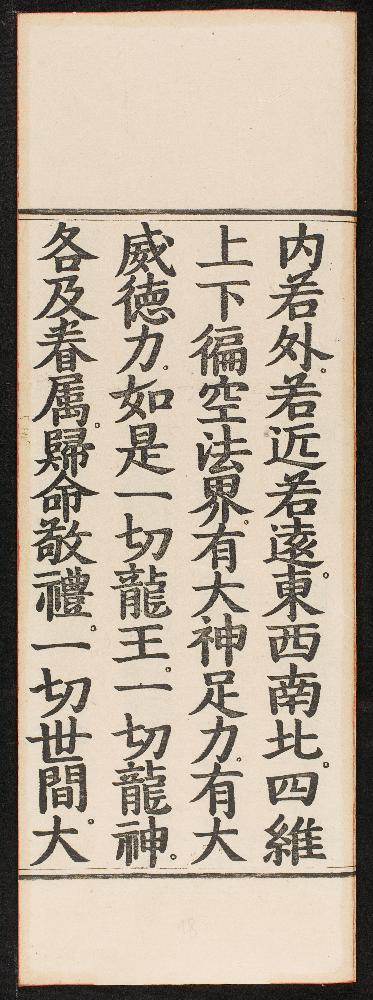 内若外。若近若遠。東西南北。四維
上下徧空法界。有大神足力。有大
威德力。如是一切龍王。一切龍神。
各及眷属。歸命敬禮。一切世間。大